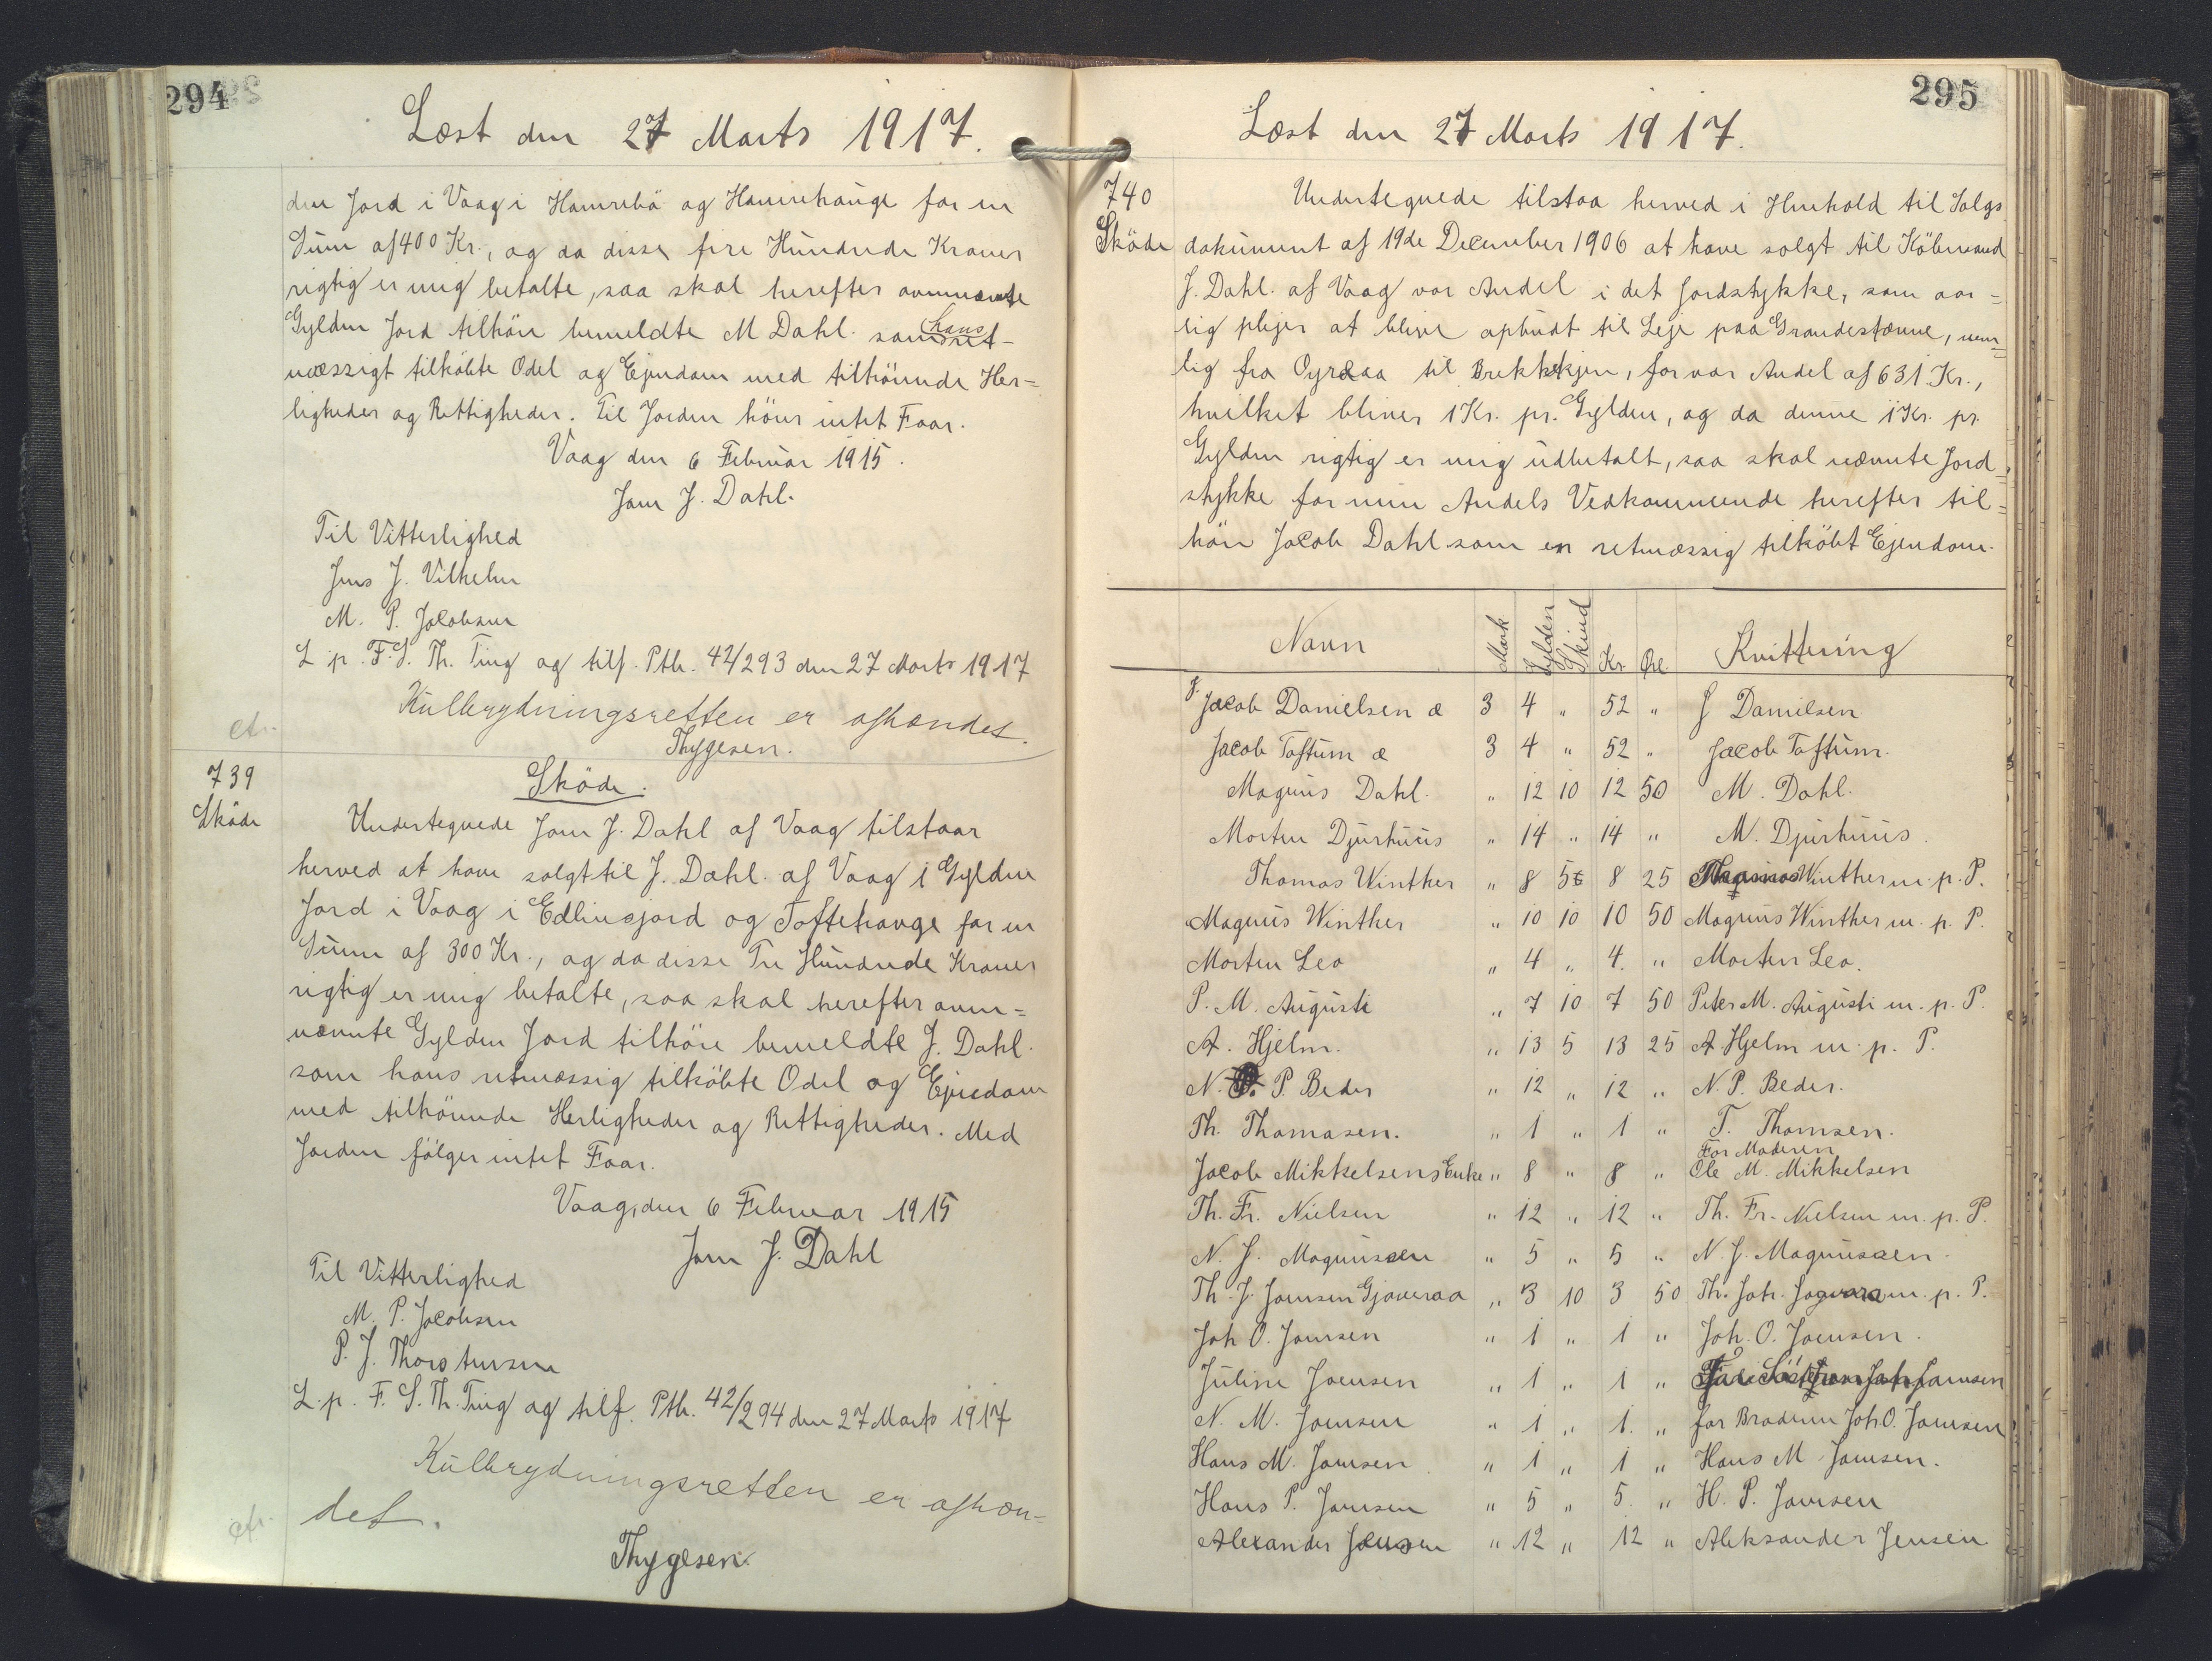 294
Læst den 27 Marts 1917.
den Jord i Vaag i Hamrebö og Hamrehauge for en
Sum af 400 Kr., og da disse fire Hundrede Kroner
rigtig er mig betalte, saa skal herefter ovennævnte
Gylden Jord tilhöre bemeldte M Dahl. som hans ret-
mæssigt tilköbte Odel og Ejendom med tilhörende Her=
ligheder og Rettigheder. Til Jorden hörer intet Faar.
Vaag den 6 Februar 1915.
Joen J. Dahl.
Til Vitterlighed
Jens J. Vilhelm
M. P. Jacobsen
L. p. F. S. Th. Ting og tilf. Ptb. 42/293 den 27 Marts 1917
Kulbrydningsretten er afhændet.
cfr.
Thygesen.
739
Sköde
Sköde.
Undertegnede Joen J. Dahl af Vaag tilstaar
herved at have solgt til J. Dahl. af Vaag 1 Gylden
Jord i Vaag i Edlinsjord og Toftehauge for en
Sum af 300 Kr., og da disse Tre Hundrede Kroner
rigtig er mig betalte, saa skal herefter oven=
nævnte Gylden Jord tilhöre bemeldte J. Dahl.
som hans retmæssig tilköbte Odel og Ejendom
med tilhörende Herligheder og Rettigheder. Med
Jorden fölger intet Faar.
Vaag, den 6 Februar 1915
Joen J. Dahl
Til Vitterlighed
M. P. Jacobsen
P. J. Thorsteinsen
L. p. F. S. Th. Ting og tilf. Ptb. 42/294 den 27 Marts 1917
Kulbrydningsretten er afhæn=
cfr. det.
Thygesen.
295
Læst den 27 Marts 1917.
740
Sköde
Undertegnede tilstaa herved i Henhold til Salgs
dokument af 19de December 1906 at have solgt til Köbmand
J. Dahl. af Vaag vor Andel i det Jordstykke, som aar=
lig plejer at blive opbudt til Leje paa Grandestævne, nem=
lig fra Oyraaa til Brekkekjen, for vor Andel af 631 Kr.,
hvilket bliver 1 Kr. pr. Gylden, og da denne 1 Kr. pr.
Gylden rigtig er mig udbetalt, saa skal nævnte Jord=
stykke for min Andels Vedkommende herefter til=
höre Jacob Dahl som en retmæssig tilköbt Ejendom.
Navn Mark Gylden Skind Kr. Öre Kvittering
J. Jacob Danielsen æ 3 4 " 52 " J Danielsen
Jacob Toftum æ 3 4 " 52 " Jacob Toftum.
Magnus Dahl. " 12 10 12 50 M. Dahl.
Morten Djurhuus " 14 " 14 " M. Djurhuus.
Thomas Winther " 8 5 8 25 Thomas Winther m. p. P.
Magnus Winther " 10 10 10 50 Magnus Winther m. p. P.
Morten Leo " 4 " 4. " Morten Leo.
P. M. Augusti " 7 10 7 50 Peter M. Augusti m. p. P.
A. Hjelm. " 13 5 13 25 A. Hjelm m. p. P.
N. P. Beder " 12 " 12 " N. P. Beder.
Th. Thomasen. " 1 " 1 " T. Thomsen.
For Moderen
Jacob Mikkelsens Enke " 8 " 8 " Ole M. Mikkelsen
Th. Fr. Nielsen " 12 " 12 " Th. Fr. Nielsen m. p. P.
N. J. Magnussen " 5 " 5 " N. J. Magnussen.
Th. J. Joensen Gjoveraa " 3 10 3 50 Th. Joh. m. p. P.
Joh O. Joensen " 1 " 1 " Joh. O. Joensen.
Juline Joensen " 1 " 1 " Joh Joensen
N. M. Joensen " 1 " 1. " for Broderen Joh O. Joensen
Hans M. Joensen " 1 " 1 " Hans M Joensen.
Hans P. Joensen " 5 " 5. " H. P. Joensen
Alexander Jensen " 12 " 12 " Aleksander Jensen